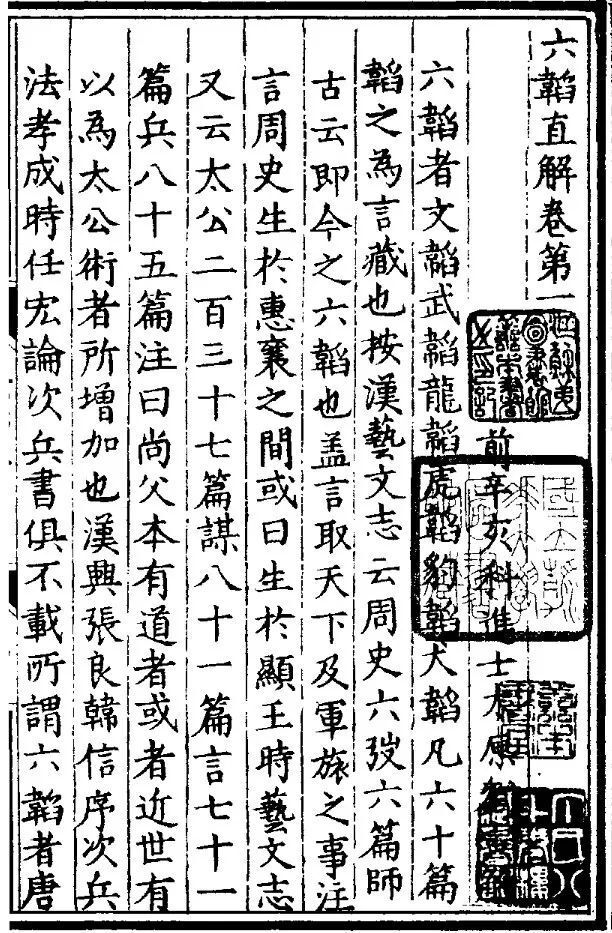 六韜直解卷第一
前辛亥科進士太原劉寅解
六韜者文韜武韜龍韜虎韜豹韜犬韜凡六十篇
韜之為言藏也按漢藝文志云周史六弢六篇師
古云即今之六韜也盖言取天下及軍旅之事注
言周史生於惠襄之間或曰生於顯王時藝文志
又云太公二百三十七篇謀八十一篇言七十一
篇兵八十五篇注曰尚父本有道者或者近世有
以為太公術者所增加也漢興張良韓信序次兵
法孝成時任宏論次兵書俱不載所謂六韜者唐